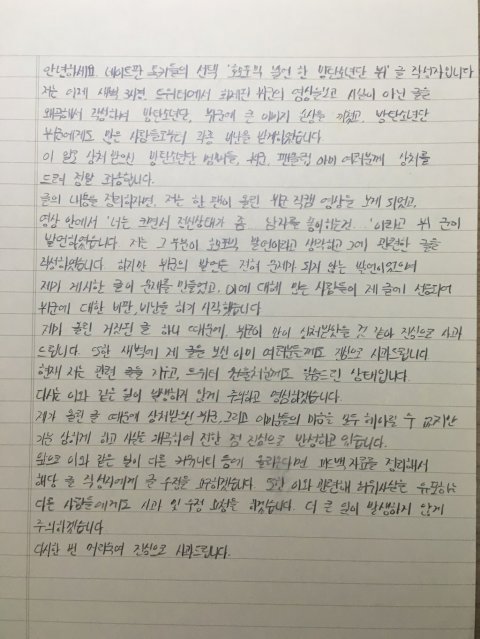 안녕하세요. 네이트판 톡커들의 선택 '호모포빅 발언 한 방탄소년단 뷔' 글 작성자입니다
저는 어제 새벽 트위터에서 화제된 뷔군의 영상을보고 사실이 아닌 글을
왜곡해서 작성하여 방탄소년단, 뷔군에 큰 이미지 손상을 끼쳤고, 방탄소년단
뷔군에게도 많은 사람들로부터 각종 비난을 받게하였습니다.
이 일로 상처 받으신 방탄소년단 멤버들, 뷔군, 팬클럽 아미 여러분께 상처를
드려 정말 죄송합니다.
글의 내용을 정리하자면, 저는 한 팬이 올린 뷔군 직캠 영상을 보게 되었고,
영상 안에서 '너는 크면서 정신상태가 좀 남자를 좋아하는건..'이라고 뷔 군이
발언하였습니다. 저는 그 부분이 호모포빅 발언이라고 생각하고 그에 관련한 글을
작성하였습니다. 하지만 뷔군의 발언은 전혀 문제가 되지 않는 발언이었으며
제가 게시한 글이 문제를 만들었고, 이에 대해 많은 사람들이 제 글에 선동되어
뷔군에 대한 비판, 비난을 하기 시작했습니다.
제가 올린 거짓된 글 하나 때문에, 뷔군이 많이 상처받았을 것 같아 진심으로 사과
드립니다. 또한 새벽에 제 글을 보신 아미 여러분들께도 진심으로 사과드립니다
현재 저는 관련 글을 지우고, 트위터 말씀드린 상태입니다.
다시는 이와 같은 일이 발생하지 않게 주의하고 명심하겠습니다.
제가 올린 글 때문에 상처받으신 뷔군, 그리고 아미분들의 마음을 모두 헤아릴 수 없지만
가늠 하게 하고 사실을 왜곡하여 전한 점 진심으로 반성하고 있습니다.
앞으로 이와 같은 일이 다른 커뮤니티 등에 올라온다면 피드백 자료를 정리해서
해당 글 작성자에게 글 수정을 요구하겠습니다. 또한 이와 관련해 허위사실을 유포하는
다른 사람들에게도 사과 및 수정 요청을 하겠습니다. 더 큰 일이 발생하지 않게
주의하겠습니다.
다시한 번 머리숙여 진심으로 사과드립니다.